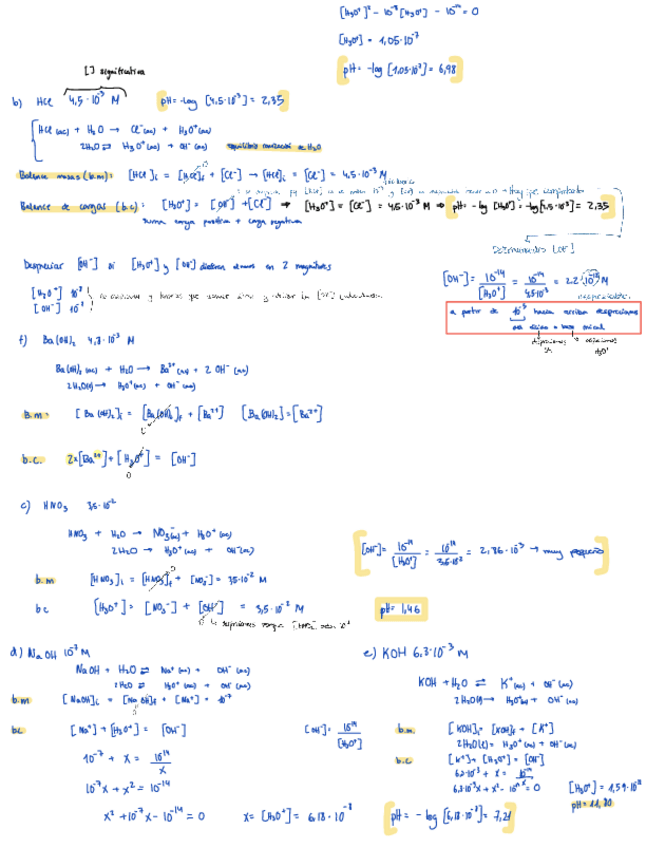 [H₃O⁺]² - 10⁻⁸[H₃O⁺] - 10⁻¹⁴ = 0
[H₃O⁺] = 1,05·10⁻⁷
pH = -log [1,05·10⁻⁷] = 6,98
[ ] significativa
b) HCl 4,5·10⁻³ M pH = -log [4,5·10⁻³] = 2,35
HCl (ac) + H₂O → Cl⁻(ac) + H₃O⁺(ac)
2H₂O ⇌ H₃O⁺(ac) + OH⁻(ac) equilibrio ionización de H₂O
Balance masas (b.m): [HCl]i = [HCl]f + [Cl⁻] → [HCl]i = [Cl⁻] = 4,5·10⁻³ M
Balance de cargas (b.c): [H₃O⁺] = [OH⁻] + [Cl⁻] → [H₃O⁺] = [Cl⁻] = 4,5·10⁻³ M ⇒ pH = -log [H₃O⁺] = -log[4,5·10⁻³] = 2,35
suma carga positiva = carga negativa
Despreciar [OH⁻] si [H₃O⁺] y [OH⁻] difieren al menos en 2 magnitudes
[OH⁻] = 10⁻¹⁴/[H₃O⁺] = 10⁻¹⁴/4,5·10⁻³ = 2,2·10⁻¹² M
despreciable
[H₃O⁺] 10⁻²
[OH⁻] 10⁻³
a partir de 10⁻⁵ hacia arriba despreciamos
f) Ba(OH)₂ 4,3·10⁻³ M
Ba(OH)₂ (ac) + H₂O → Ba²⁺(ac) + 2OH⁻(ac)
2H₂O(l) → H₃O⁺(ac) + OH⁻(ac)
b.m: [Ba(OH)₂]i = [Ba(OH)₂]f + [Ba²⁺] [Ba(OH)₂] = [Ba²⁺]
b.c. 2x[Ba²⁺] + [H₃O⁺] = [OH⁻]
0
c) HNO₃ 3,5·10⁻²
HNO₃ + H₂O → NO₃⁻(ac) + H₃O⁺(ac)
2H₂O → H₃O⁺(ac) + OH⁻(ac)
[OH⁻] = 10⁻¹⁴/[H₃O⁺] = 10⁻¹⁴/3,5·10⁻² = 2,86·10⁻¹³ → muy pequeño
b.m [HNO₃]i = [HNO₃]f + [NO₃⁻] = 3,5·10⁻² M
b.c [H₃O⁺] = [NO₃⁻] + [OH⁻] = 3,5·10⁻² M pH = 1,46
d) NaOH 10⁻⁷ M
NaOH + H₂O ⇌ Na⁺(ac) + OH⁻(ac)
2H₂O ⇌ H₃O⁺(ac) + OH⁻(ac)
b.m [NaOH]i = [NaOH]f + [Na⁺] = 10⁻⁷
b.c [Na⁺] + [H₃O⁺] = [OH⁻] [OH⁻] = 10⁻¹⁴/[H₃O⁺]
10⁻⁷ + x = 10⁻¹⁴/x
10⁻⁷x + x² = 10⁻¹⁴
x² + 10⁻⁷x - 10⁻¹⁴ = 0 x = [H₃O⁺] = 6,18·10⁻⁸ pH = -log [6,18·10⁻⁸] = 7,21
e) KOH 6,3·10⁻³ M
KOH + H₂O ⇌ K⁺(ac) + OH⁻(ac)
2H₂O(l) → H₃O⁺(ac) + OH⁻(ac)
b.m. [KOH]i = [KOH]f + [K⁺]
2H₂O(l) = H₃O⁺(ac) + OH⁻(ac)
b.c [K⁺] + [H₃O⁺] = [OH⁻]
6,3·10⁻³x + x² - 10⁻¹⁴ = 0
[H₃O⁺] = 1,59·10⁻¹²
pH = 11,80